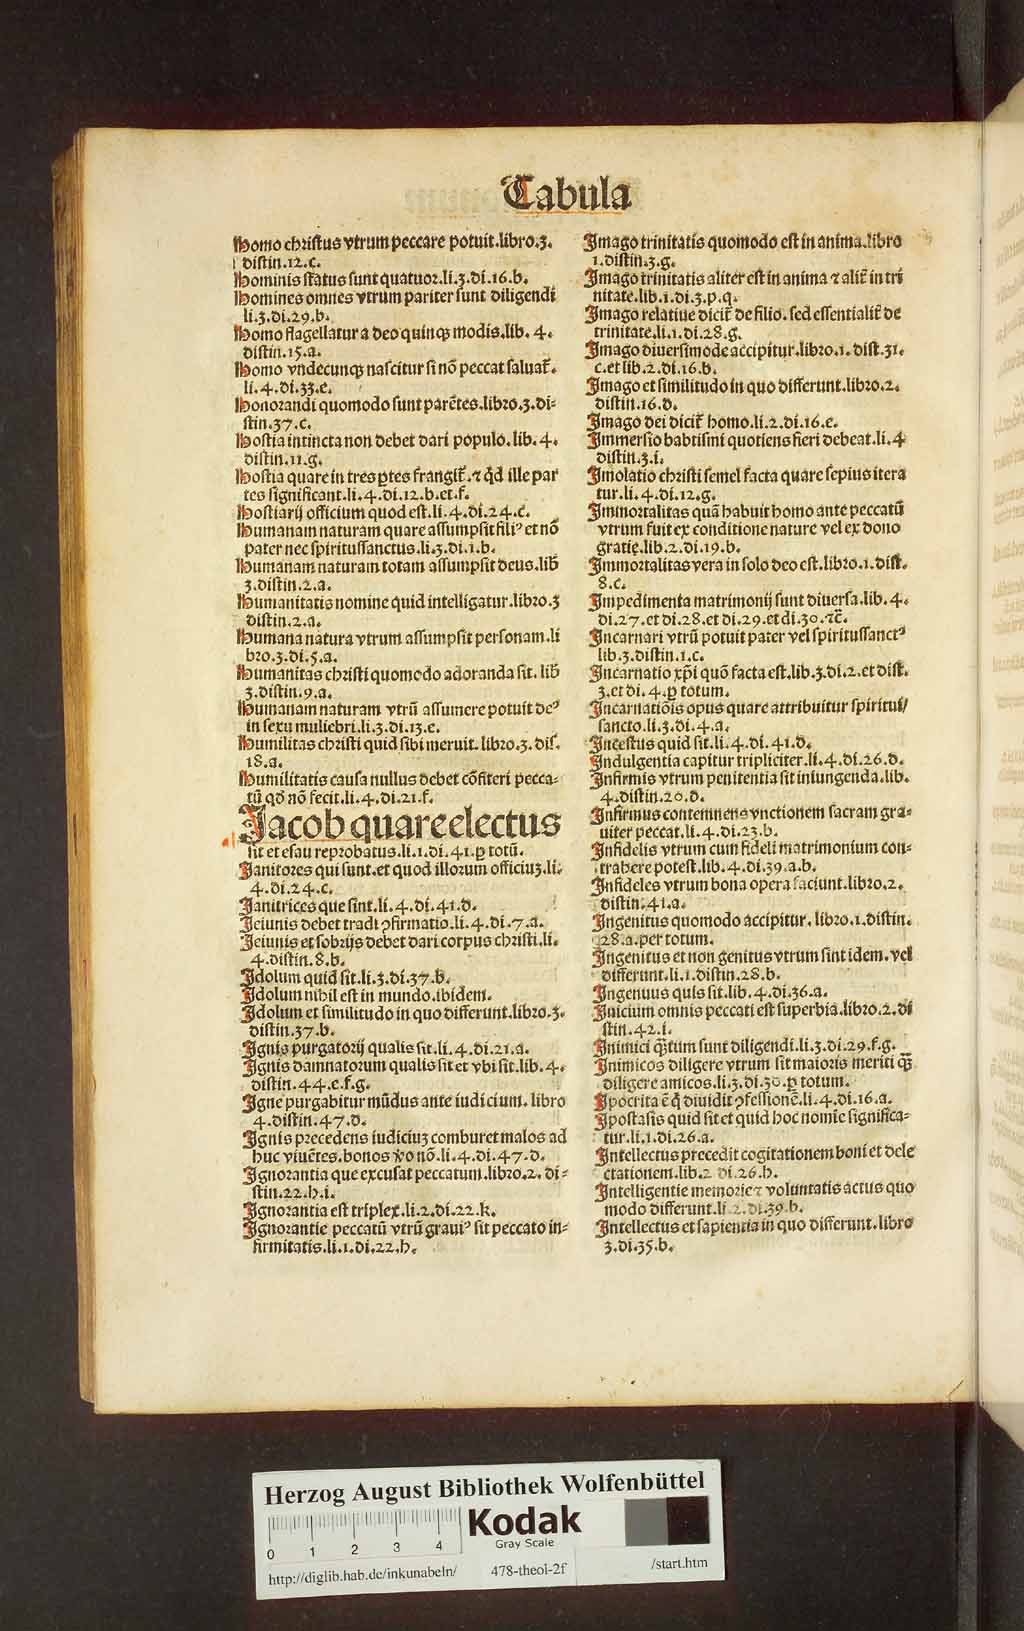 Tabula
Homo christus vtrum peccare potuit.libro.3.
distin.12.c.
Hominis status sunt quatuor.li.3.di.16.b.
Homines omnes vtrum pariter sunt diligendi
li.3.di.29.b.
Homo flagellatur a deo quinqꝫ modis.lib. 4.
distin.15.a.
Homo vndecunqꝫ nascitur si nō peccat saluat᷑.
li.4.di.33.e.
Honorandi quomodo sunt parētes.libro.3.di=
stin.37.c.
Hostia intincta non debet dari populo. lib. 4.
distin.11.g.
Hostia quare in tres ꝑtes frangit᷑.⁊ qd̓ ille par
tes significant.li.4.di.12.b.et.f.
Hostiarij officium quod est.li.4.di.24.c.
Humanam naturam quare assumpsit filiꝰ et nō
pater nec spiritussanctus.li.3.di.1.b.
Humanam naturam totam assumpsit deus.lib̄
3.distin.2.a.
Humanitatis nomine quid intelligatur.libro.3
distin.2.a.
Humana natura vtrum assumpsit personam.li
bro.3.di.5.a.
Humanitas christi quomodo adoranda sit. lib̄
3.distin.9.a.
Humanam naturam vtrū assumere potuit deꝰ
in sexu muliebri.li.3.di.13.e.
Humilitas christi quid sibi meruit. libro.3. dis.
18.a.
Humilitatis causa nullus debet cōfiteri pecca-
tū qd̓ nō fecit.li.4.di.21.f.
Jacob quare electus
sit et esau reprobatus.li.1.di.41.ꝑ totū.
Janitores qui sunt.et quod illorum officiuꝫ.li.
4.di.24.c.
Janitrices que sint.li.4.di.41.d.
Jeiunis debet tradi ꝯfirmatio.li.4.di.7.a.
Jeiunis et sobrijs debet dari corpus christi.li.
4.distin.8.b.
Idolum quid sit.li.3.di.37.b.
Idolum nihil est in mundo.ibidem.
Idolum et similitudo in quo differunt.libro.3.
distin.37.b.
Ignis purgatorij qualis sit.li.4.di.21.a.
Ignis damnatorum qualis sit et vbi sit.lib.4.
distin.44.e.f.g.
Igne purgabitur mūdus ante iudicium. libro
4.distin.47.d.
Ignis precedens iudiciuꝫ comburet malos ad
huc viuētes.bonos ꝟo nō.li.4.di.47.d.
Ignorantia que excusat peccatum.libro.2. di=
stin.22.h.i.
Ignorantia est triplex.li.2.di.22.k.
Ignorantie peccatū vtrū grauiꝰ sit peccato in=
firmitatis.li.1.di.22.h.
Imago trinitatis quomodo est in anima.libro
1.distin.3.g.
Imago trinitatis aliter est in anima ⁊ alit᷑ in tri
nitate.lib.1.di.3.p.q.
Imago relatiue dicit᷑ de filio. sed essentialit᷑ de
trinitate.li.1.di.28.g.
Imago diuersimode accipitur.libro.1. dist.31.
c.et lib.2.di.16.b.
Imago et similitudo in quo differunt.libro.2.
distin.16.d.
Imago dei dicit᷑ homo.li.2.di.16.e.
Immersio babtismi quotiens fieri debeat.li.4
distin.3.i.
Imolatio christi semel facta quare sepius itera
tur.li.4.di.12.g.
Immortalitas quā habuit homo ante peccatū
vtrum fuit ex conditione nature vel ex dono
gratię.lib.2.di.19.b.
Immortalitas vera in solo deo est.libro.1.dist.
8.c.
Impedimenta matrimonij sunt diuersa.lib. 4.
di.27.et di.28.et di.29.et di.30.⁊c̄.
Incarnari vtrū potuit pater vel spiritussanctꝰ
lib.3.distin.1.c.
Incarnatio xp̄i quō facta est.lib.3.di.2.et dist.
3.et di. 4.ꝑ totum.
Incarnatiōis opus quare attribuitur spiritui/
sancto.li.3.di.4.a.
Incestus quid sit.li.4.di.41.d.
Indulgentia capitur tripliciter.li.4.di.26.d.
Infirmis vtrum penitentia sit iniungenda.lib.
4.distin.20.d.
Infirmus contemnens vnctionem sacram gra=
uiter peccat.li.4.di.23.b.
Infidelis vtrum cum fideli matrimonium con-
trahere potest.lib.4.di.39.a.b.
Infideles vtrum bona opera faciunt.libro.2.
distin.41.a.
Ingenitus quomodo accipitur. libro.1.distin.
28.a.per totum.
Ingenitus et non genitus vtrum sint idem.vel
differunt.li.1.distin.28.b.
Ingenuus quis sit.lib.4.di.36.a.
Inicium omnis peccati est superbia.libro.2.di
stin.42.i.
Inimici qꝫtum sunt diligendi.li.3.di.29.f.g.
Inimicos diligere vtrum sit maioris meriti qꝫ
diligere amicos.li.3.di.30.ꝑ totum.
Ipocrita ē q̓ diuidit ꝯfessionē.li.4.di.16.a.
Ipostasis quid sit et quid hoc nomīe significa=
tur.li.1.di.26.a.
Intellectus precedit cogitationem boni et dele
ctationem.lib.2 di.26.h.
Intelligentie memorie ⁊ voluntatis actus quo
modo differunt.li.2.di.39.b.
Intellectus et sapientia in quo differunt.libro
3.di.35.b.
Herzog August Bibliothek Wolfenbüttel
0 1 2 3 4
Kodak
Gray Scale
http://diglib.hab.de/inkunabeln/ 478-theol-2f /start.htm